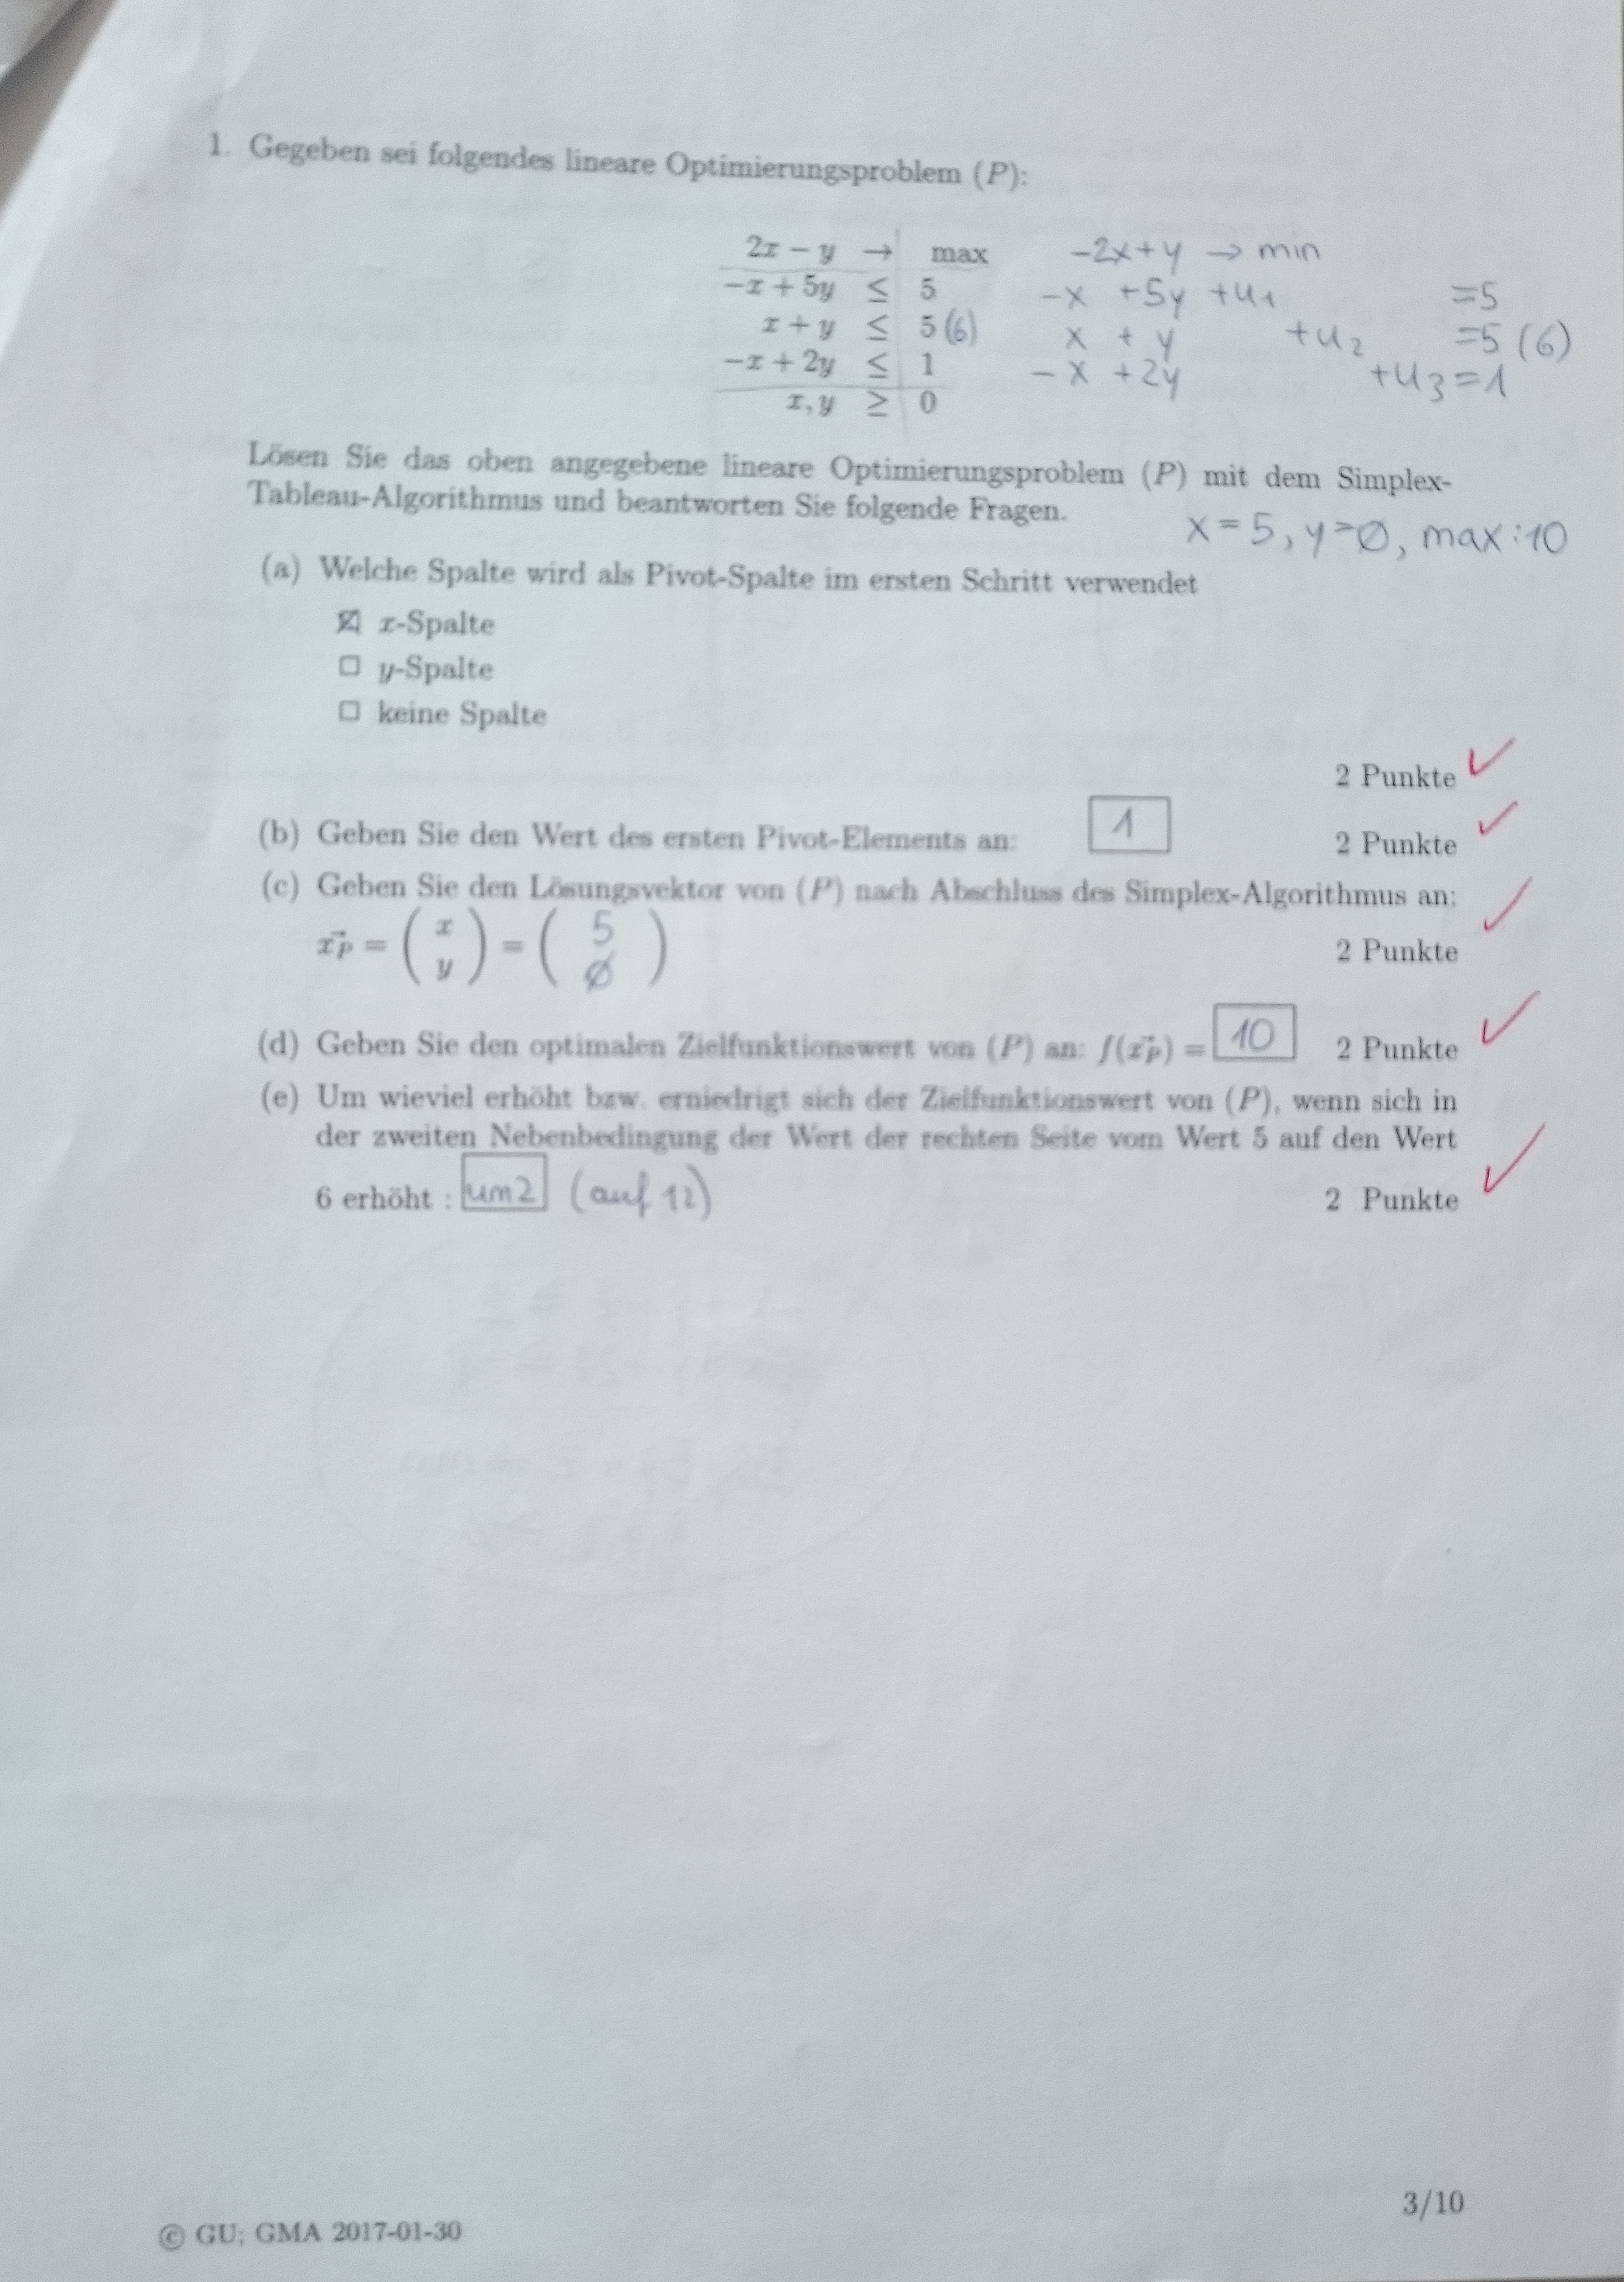 1. Gegeben sei folgendes lineare Optimierungsproblem (P):
2x − y → max   -2x+y → min
−x + 5y ≤ 5   -x +5y +u1 =5
x + y ≤ 5(6)   x + y +u2 =5 (6)
−x + 2y ≤ 1   -x +2y +u3=1
x, y ≥ 0
Lösen Sie das oben angegebene lineare Optimierungsproblem (P) mit dem Simplex-
Tableau-Algorithmus und beantworten Sie folgende Fragen.
x=5, y=∅, max:10
(a) Welche Spalte wird als Pivot-Spalte im ersten Schritt verwendet
☒ x-Spalte
☐ y-Spalte
☐ keine Spalte
2 Punkte ✓
(b) Geben Sie den Wert des ersten Pivot-Elements an: 1 2 Punkte ✓
(c) Geben Sie den Lösungsvektor von (P) nach Abschluss des Simplex-Algorithmus an: ✓
x⃗P = (x y) = (5 ∅) 2 Punkte
(d) Geben Sie den optimalen Zielfunktionswert von (P) an: f(x⃗P) = 10 2 Punkte ✓
(e) Um wieviel erhöht bzw. erniedrigt sich der Zielfunktionswert von (P), wenn sich in
der zweiten Nebenbedingung der Wert der rechten Seite vom Wert 5 auf den Wert
6 erhöht : um 2 (auf 12) 2 Punkte ✓
3/10
© GU; GMA 2017-01-30